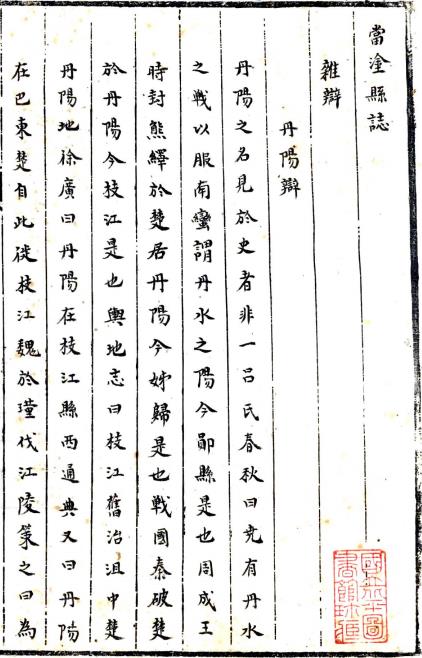 當塗縣誌
雜辯
丹陽辯
丹陽之名見於史者非一呂氏春秋曰堯有丹水
之戰以服南蠻謂丹水之陽今鄖縣是也周成王
時封熊繹於楚居丹陽今姊歸是也戰國秦破楚
於丹陽今枝江是也輿地志曰枝江舊治沮中楚
丹陽地徐廣曰丹陽在枝江縣西通典又曰丹陽
在巴東楚自此徙枝江魏於瑾伐江陵策之曰為